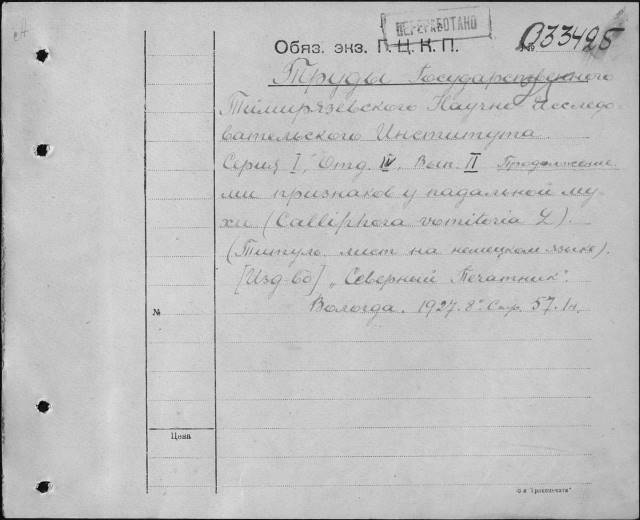 ПЕРЕРАБОТАНО
Обяз. экз. Г. Ц. К. П. № 033425
Труды Государственного
Тимирязевского Научно-Исследо-
вательского Института
Серия I, Отд. IV, Вып. II Продолжение
ми признаков у падальной му-
хи (Calliphora vomitoria L).
(Титул. лист на немецком языке).
[Изд-во] „Северный Печатник".
№ Вологда. 1927. 8° Стр. 57.
Цена